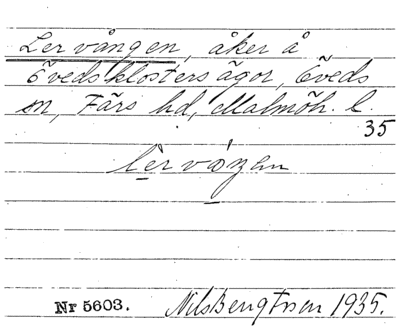 Lervången, åker å
Öveds klosters ägor, Öveds
sn, Färs hd, Malmöh. l.
35
lèrváŋen
Nr 5603. Nils Bengtsson 1935.